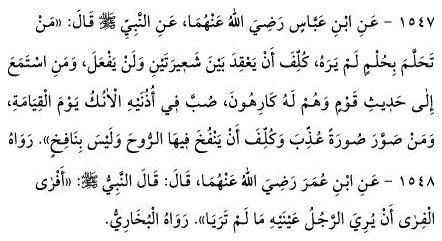 ١٥٤٧ - عَنِ ابْنِ عَبَّاسٍ رَضِيَ اللهُ عَنْهُمَا، عَنِ النَّبِيِّ ﷺ قَالَ: «مَنْ
تَحَلَّمَ بِحُلْمٍ لَمْ يَرَهُ، كُلِّفَ أَنْ يَعْقِدَ بَيْنَ شَعِيرَتَيْنِ وَلَنْ يَفْعَلَ، وَمَنِ اسْتَمَعَ
إِلَى حَدِيثِ قَوْمٍ وَهُمْ لَهُ كَارِهُونَ، صُبَّ فِي أُذُنَيْهِ الْآنُكُ يَوْمَ الْقِيَامَةِ،
وَمَنْ صَوَّرَ صُورَةً عُذِّبَ وَكُلِّفَ أَنْ يَنْفُخَ فِيهَا الرُّوحَ وَلَيْسَ بِنَافِخٍ». رَوَاهُ
١٥٤٨ - عَنِ ابْنِ عُمَرَ رَضِيَ اللهُ عَنْهُمَا، قَالَ: قَالَ النَّبِيُّ ﷺ: «أَفْرَى
الْفِرَى أَنْ يُرِيَ الرَّجُلُ عَيْنَيْهِ مَا لَمْ تَرَيَا». رَوَاهُ الْبُخَارِيُّ.